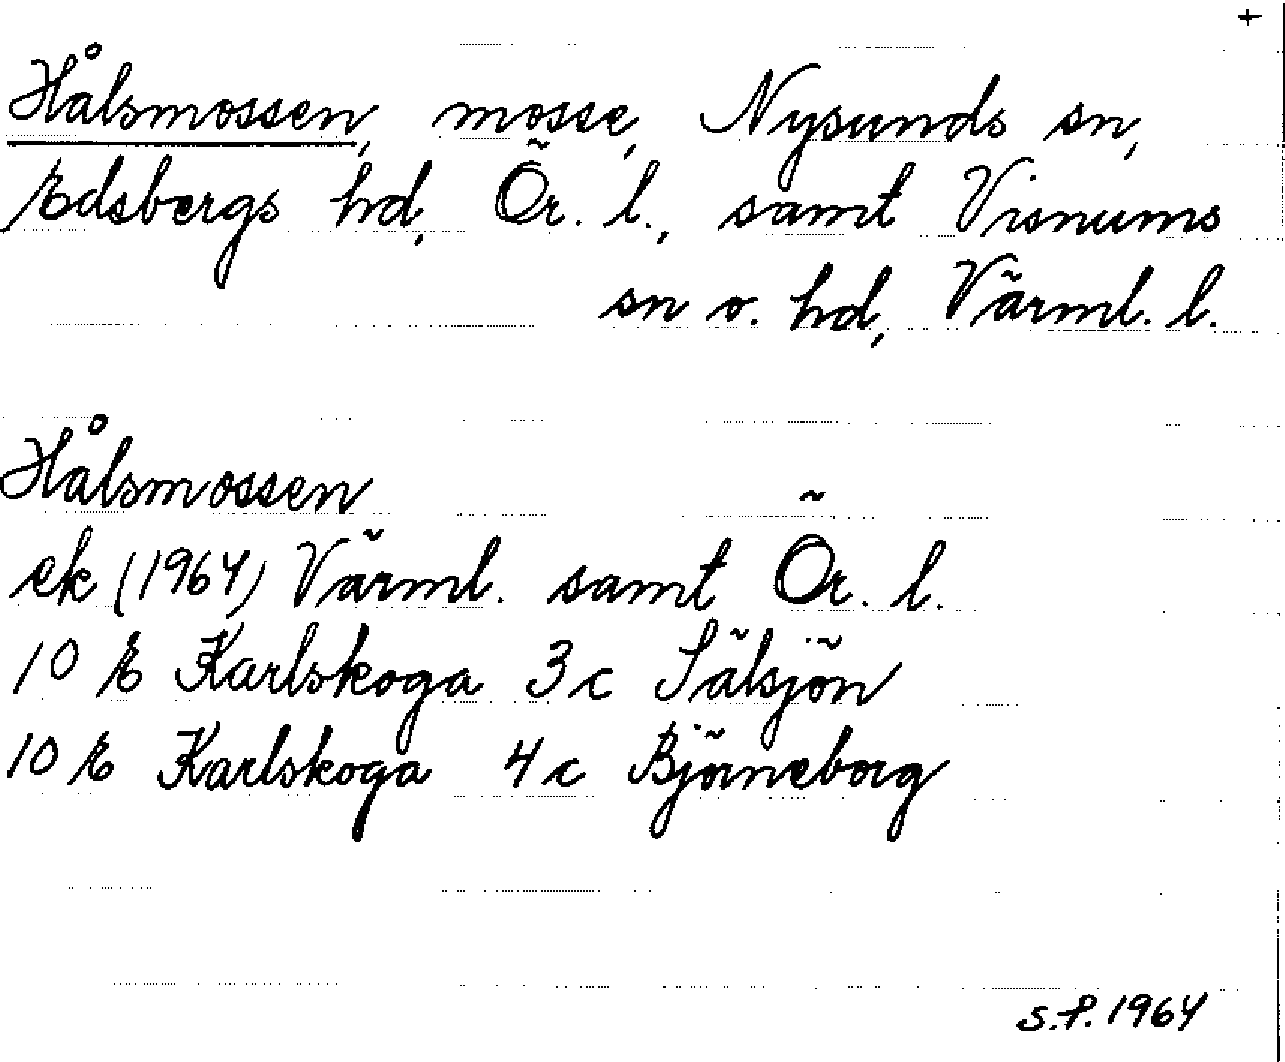 +
Hålsmossen, mosse, Nysunds sn,
Edsbergs hd, Ör. l., samt Visnums
sn o. hd, Värml. l.
Hålsmossen
ek (1964) Värml. samt Ör. l.
10 E Karlskoga 3c Sälsjön
10 E Karlskoga 4c Björneborg
S.P. 1964